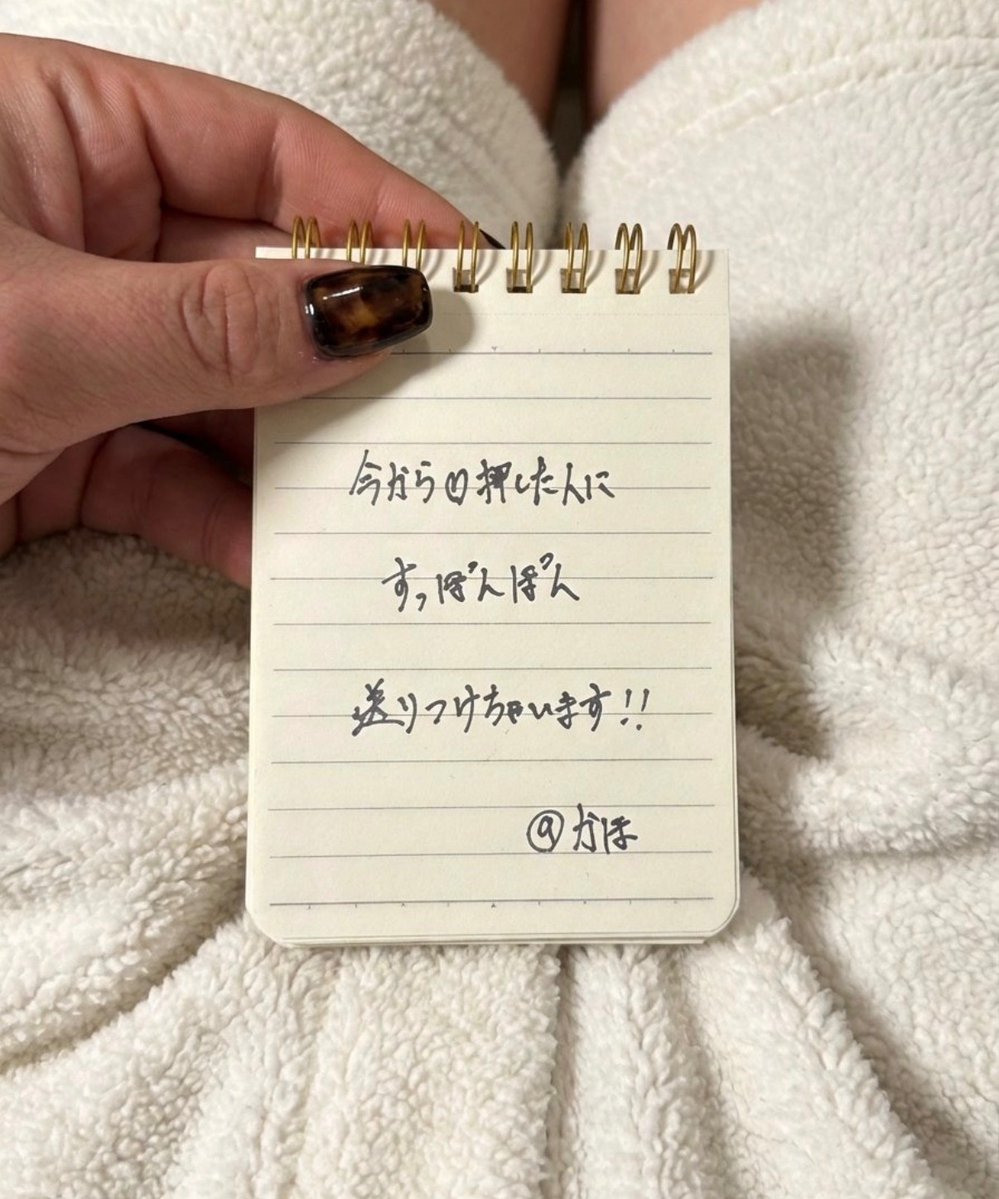 今から♡押した人に
すっぽんぽん
送りつけちゃいます!!
@かほ